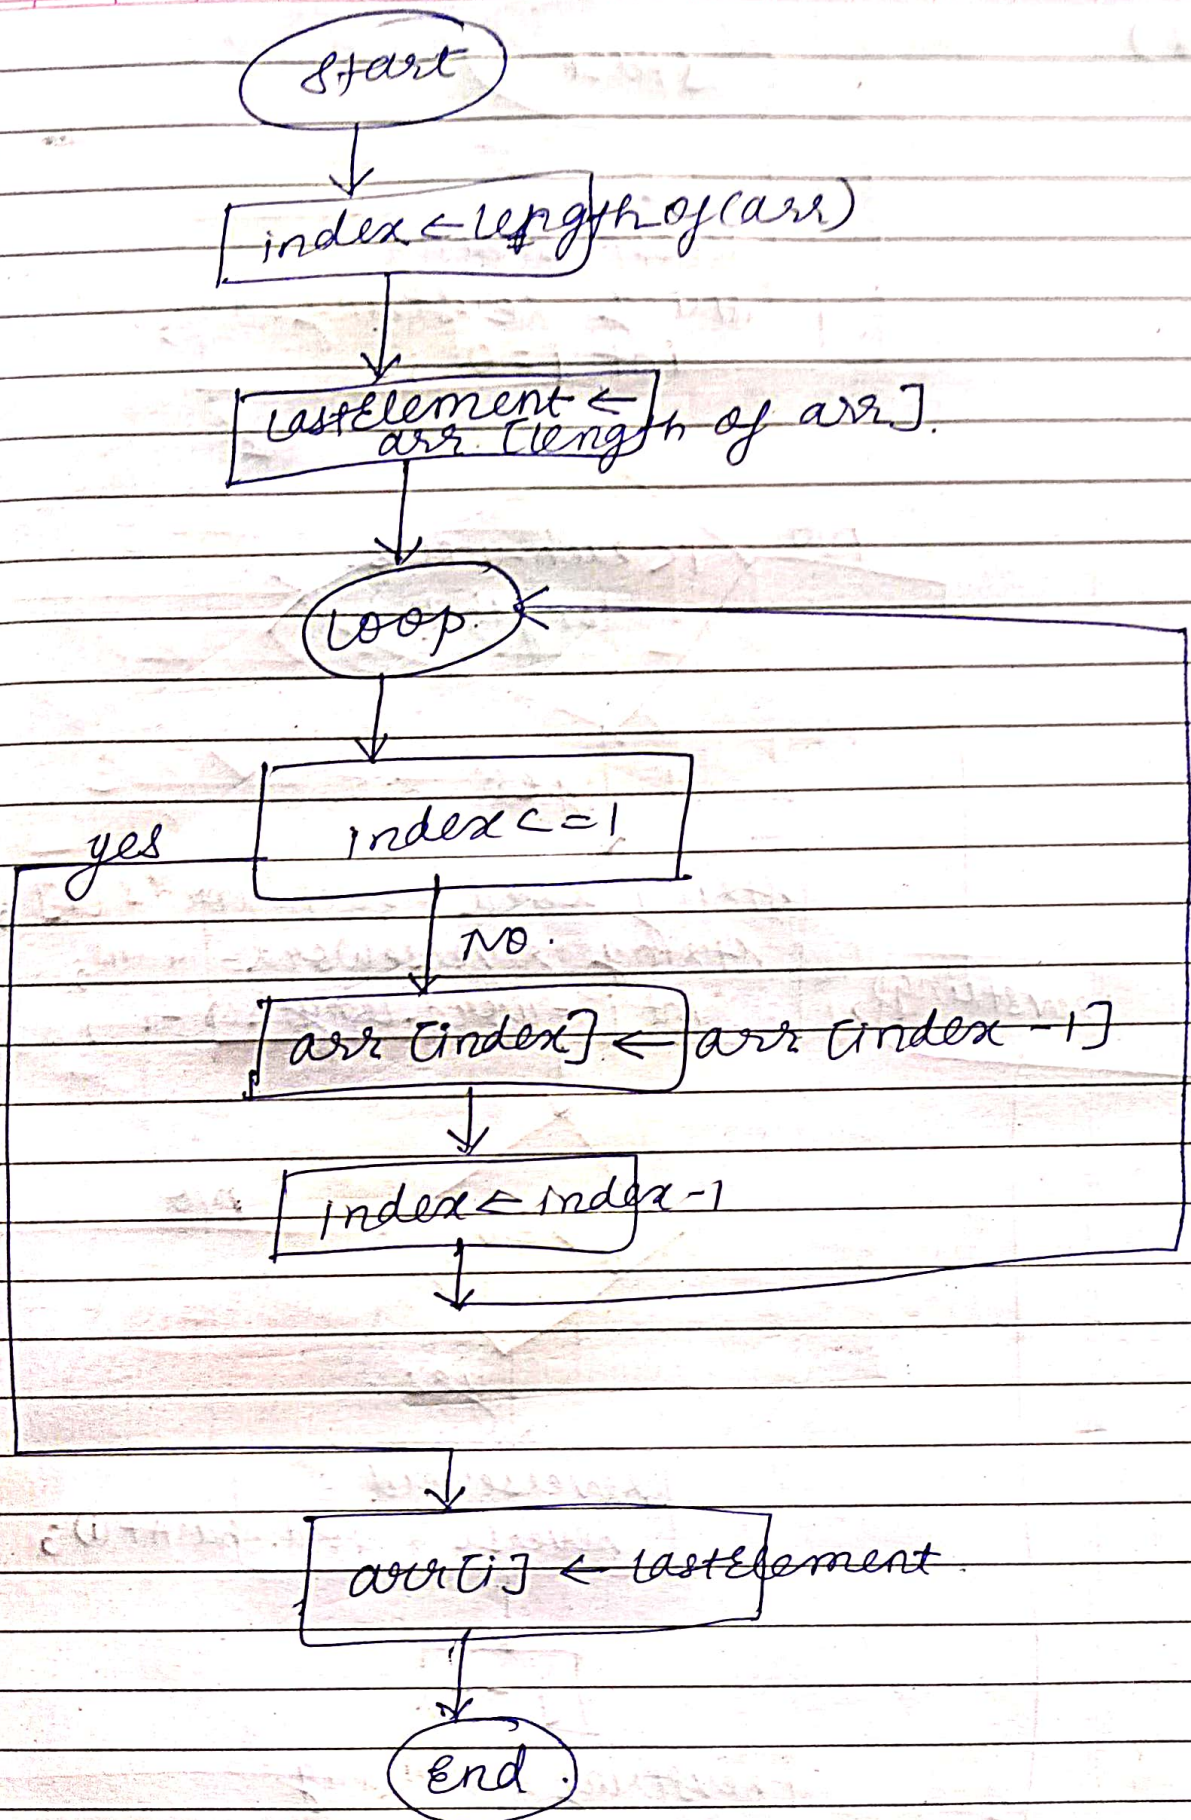 Start
index ← length of (arr)
LastElement ←
arr [length of arr].
Loop.
index <= 1
yes
NO.
arr [index] ← arr [index - 1]
index ← index - 1
arr[i] ← lastElement.
End.